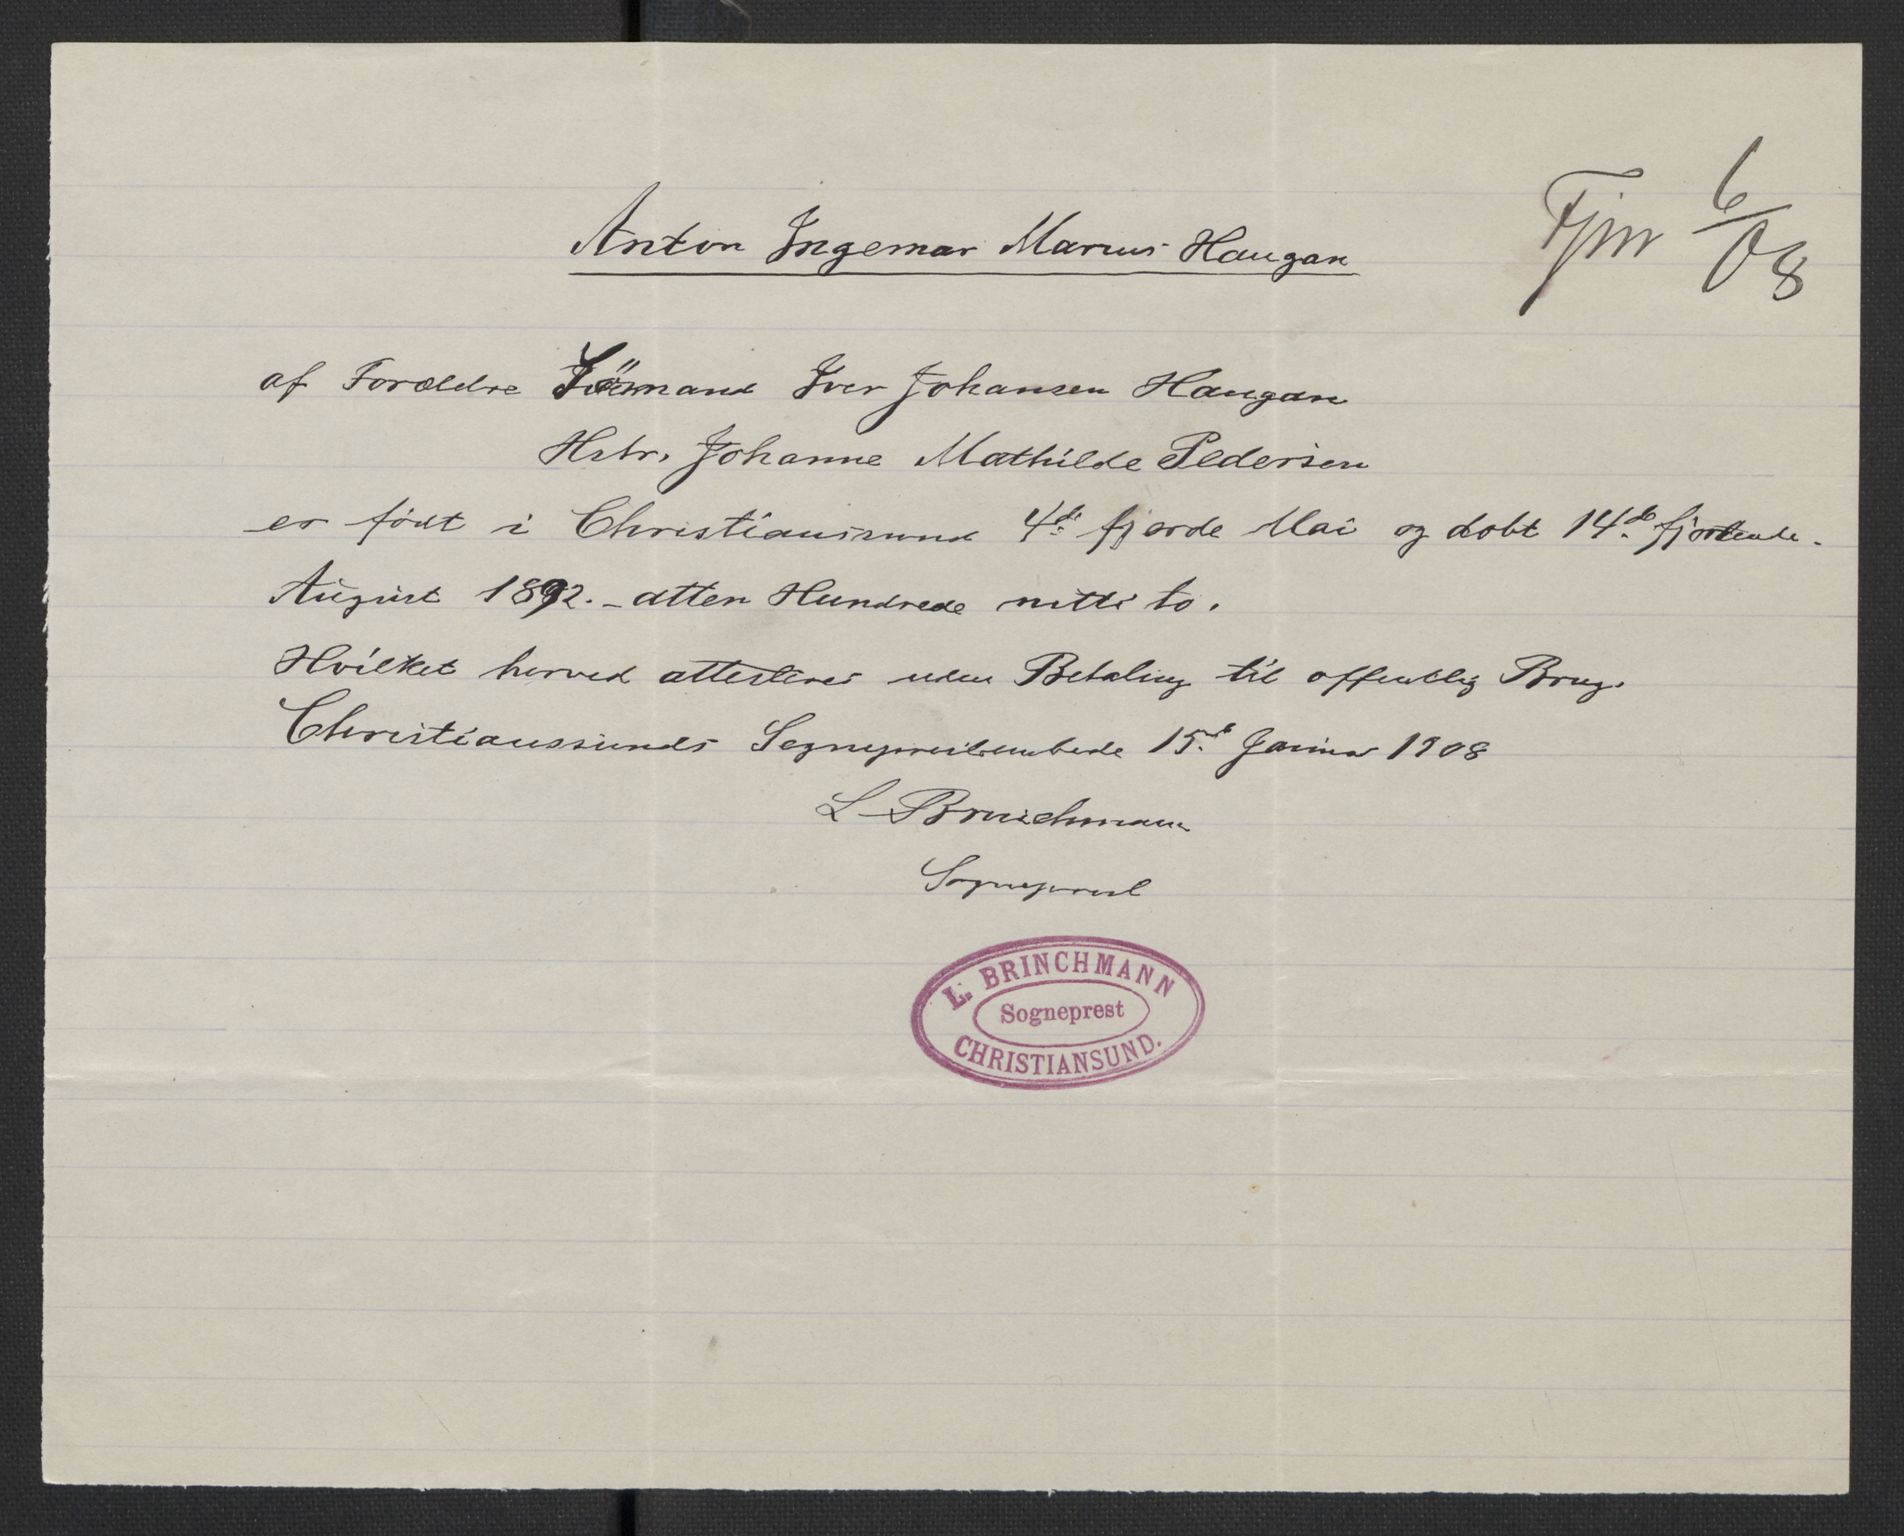 Fjm 6/08
Anton Ingemar Marius Haugan
af Forældre Sömand Iver Johansen Haugan
Hstr. Johanne Mathilde Pedersen
er født i Christianssund 4de fjerde Mai og døbt 14de fjortende
August 1892. - atten Hundrede nitti to.
Hvilket herved attesteres uden Betaling til offentlig Brug.
Christianssunds Sogneprestembede 15de Januar 1908
L Brinchmann
Sogneprest
L. BRINCHMANN
Sogneprest
CHRISTIANSUND.